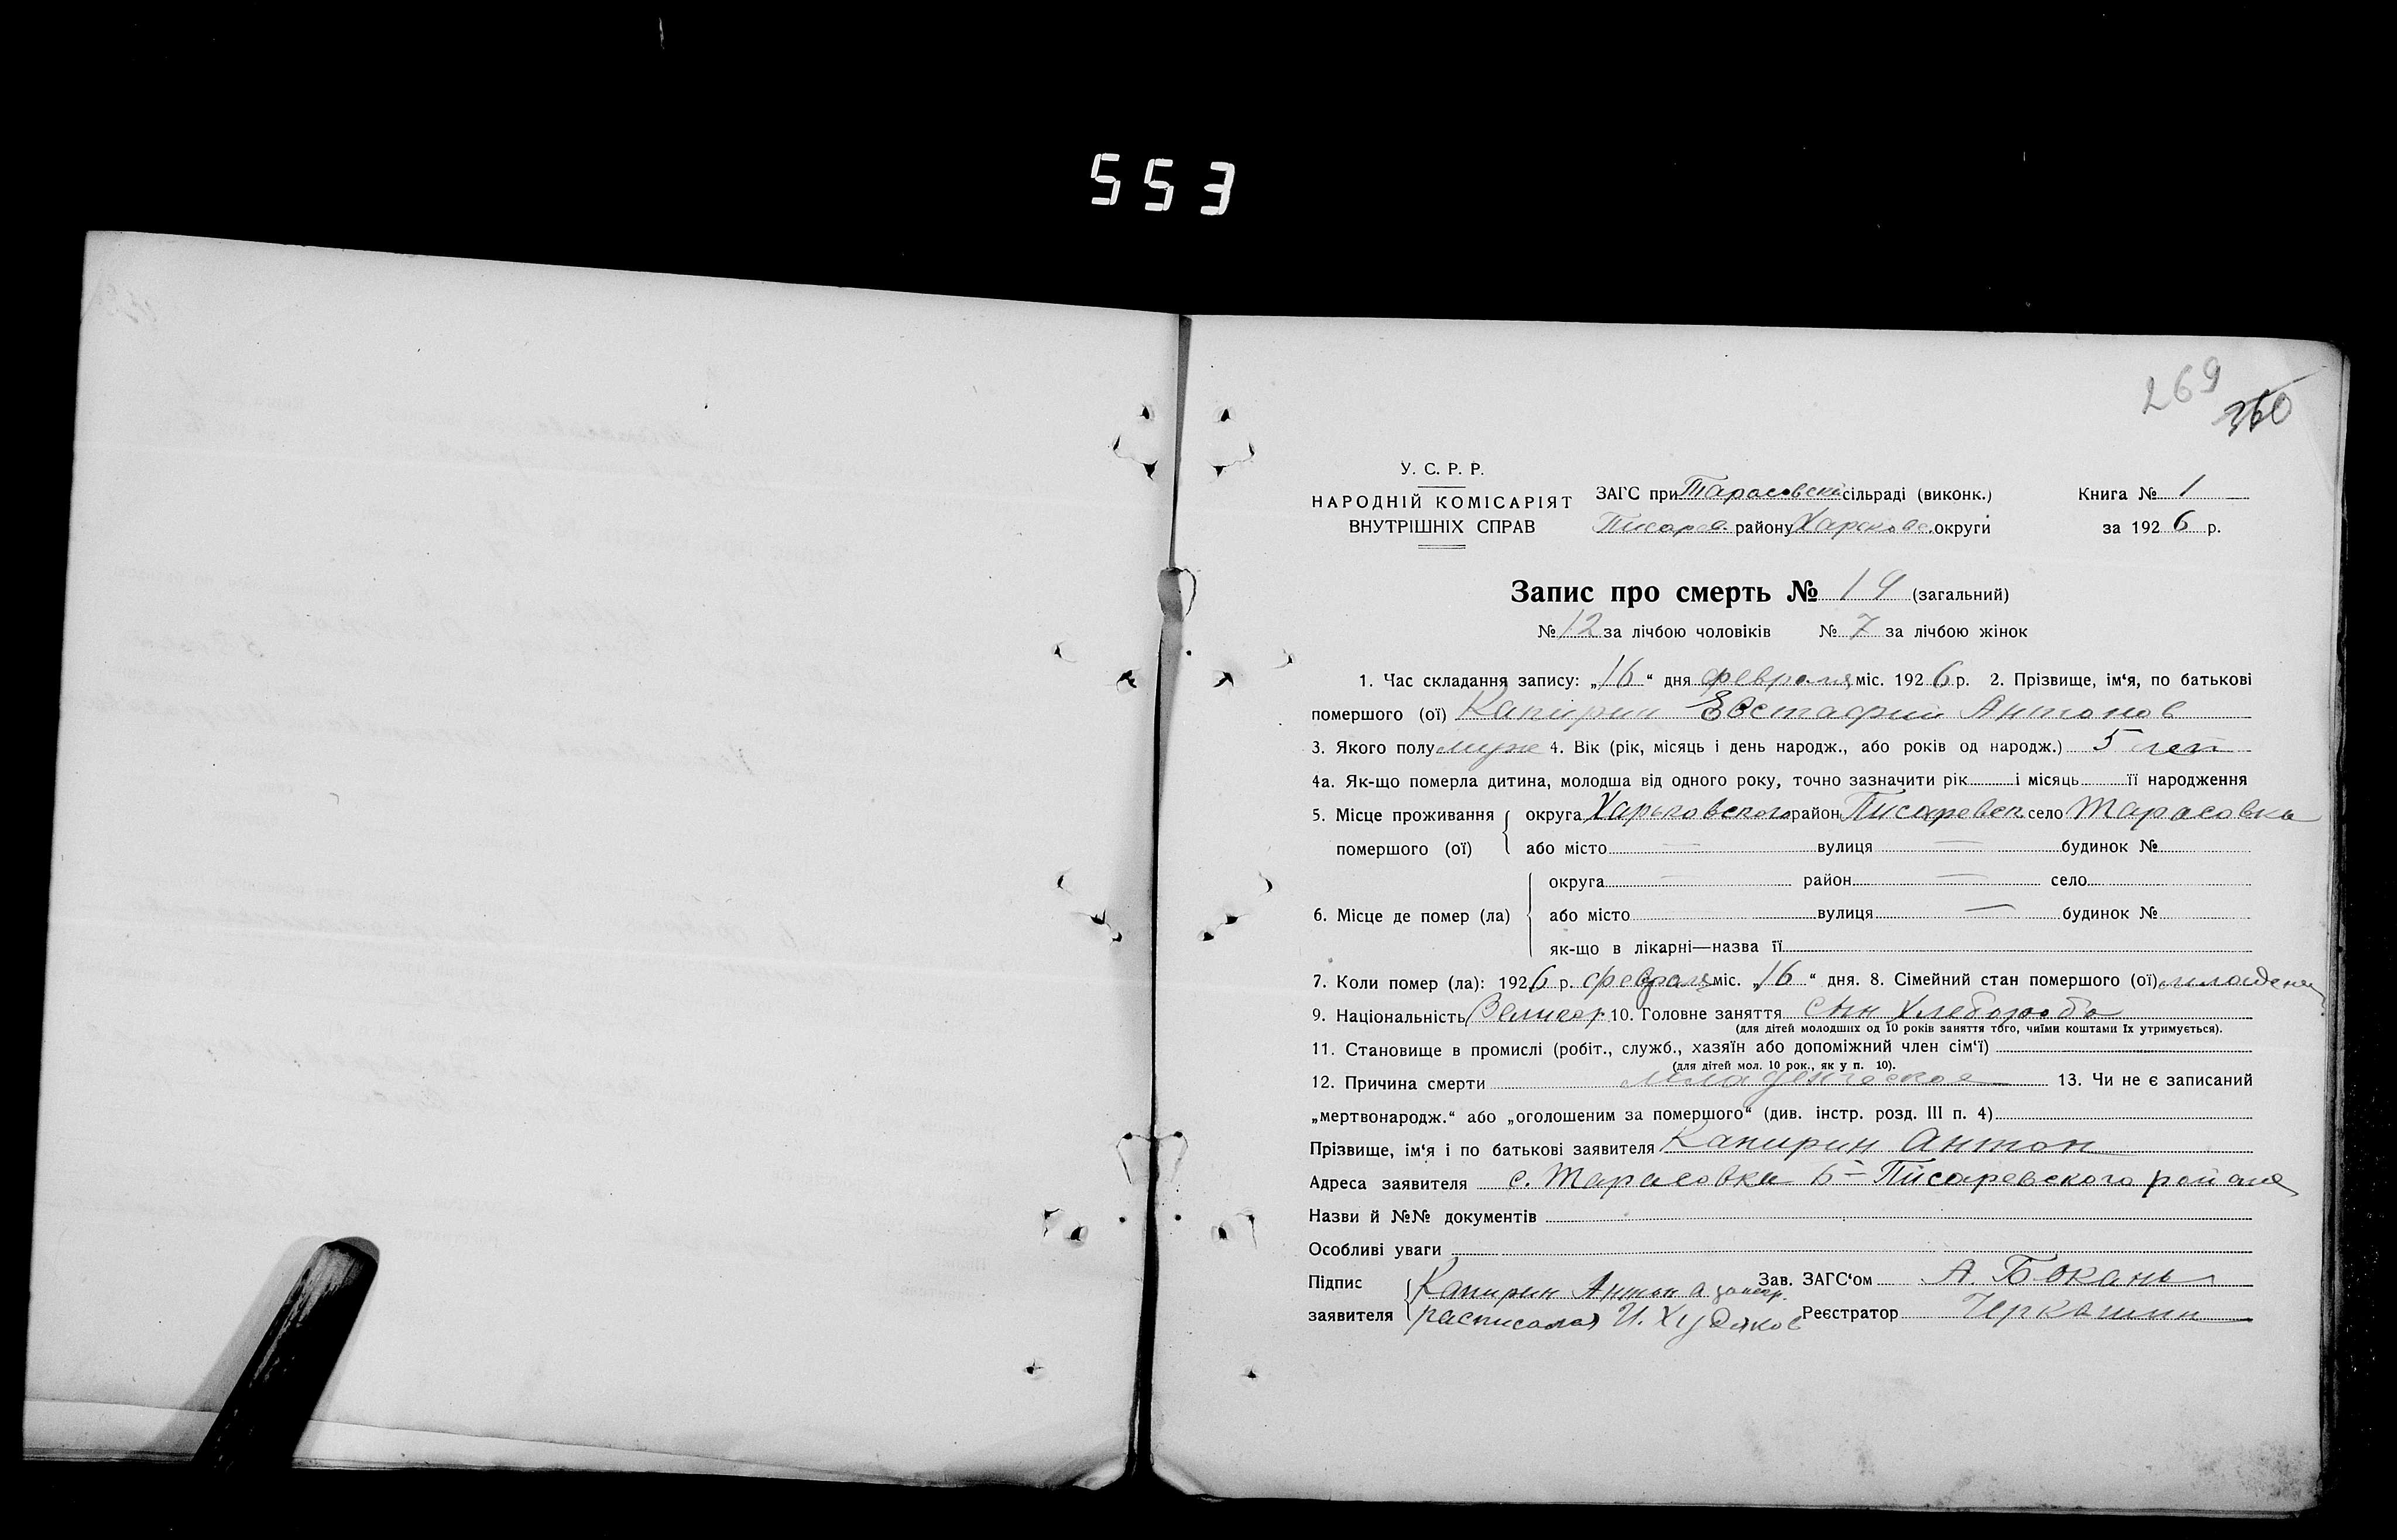 553
269
360
У. С. Р. Р.
НАРОДНІЙ КОМІСАРІЯТ
ВНУТРІШНІХ СПРАВ
ЗАГС при Тарасовск сільраді (виконк.)
Писарев. району Харьковс. округи
Книга № 1
за 1926 р.
Запис про смерть № 19 (загальний)
№ 12 за лічбою чоловіків № 7 за лічбою жінок
1. Час складання запису: „16“ дня февраля міс. 1926 р. 2. Прізвище, ім‘я, по батькові
помершого (ої) Капирин Евстафий Антонов
3. Якого полу муже 4. Вік (рік, місяць і день народж., або років од народж.) 5 лет
4а. Як-що померла дитина, молодша від одного року, точно зазначити рік і місяць її народження
5. Місце проживання помершого (ої)
округа Харьковского район Писаревск село Тарасовка
або місто — вулиця — будинок №
6. Місце де помер (ла)
округа — район — село
або місто вулиця — будинок №
як-що в лікарні—назва її
7. Коли помер (ла): 1926 р. февраля міс. „16“ дня. 8. Сімейний стан помершого (ої) младенец
9. Національність Великор 10. Головне заняття сын хлебороба
(для дітей молодших од 10 років заняття того, чиїми коштами їх утримується).
11. Становище в промислі (робіт., служб., хазяїн або допоміжний член сім‘ї)
(для дітей мол. 10 рок., як у п. 10).
12. Причина смерти младенческое 13. Чи не є записаний
„мертвонародж.“ або „оголошеним за помершого“ (див. інстр. розд. III п. 4)
Прізвище, ім‘я і по батькові заявителя Капирин Антон
Адреса заявителя с. Тарасовки Б- Писаревского района
Назви й №№ документів
Особливі уваги
Підпис заявителя
Капирин Антон а за негр.
расписался И. Худяков
Зав. ЗАГС‘ом А. Бокань
Реєстратор Черкашин